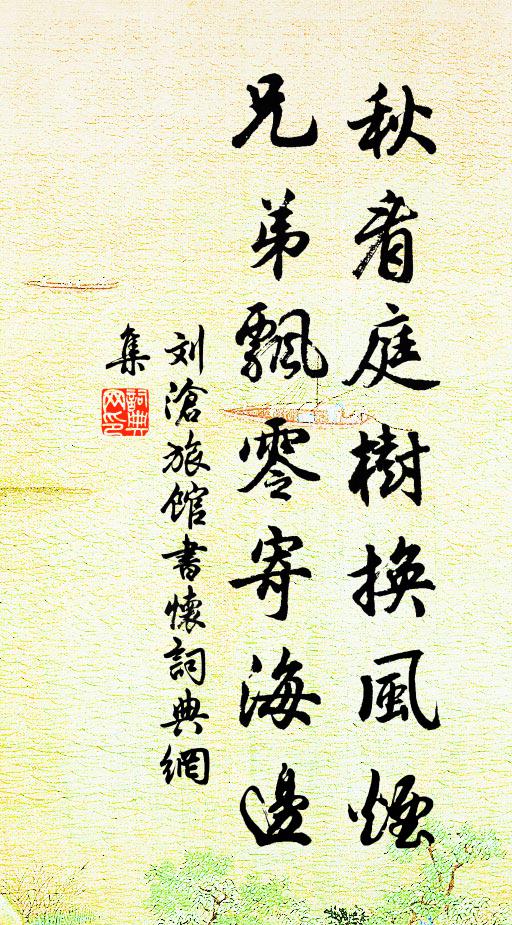 秋看庭樹換風煙
兄弟飄零寄海邊
刘滄旅館書懷詞典網
集
詞典网印